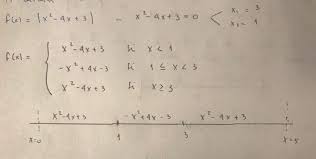 f(x) = |x²-4x+3| — x²-4x+3=0 < x₁ = 3
x₂ = 1
f(x) = { x²-4x+3 x < 1
-x²+4x-3 1 ≤ x < 3
x²-4x+3 x ≥ 3
x²-4x+3 -x²+4x-3 x²-4x+3
x=0 1 3 x=5